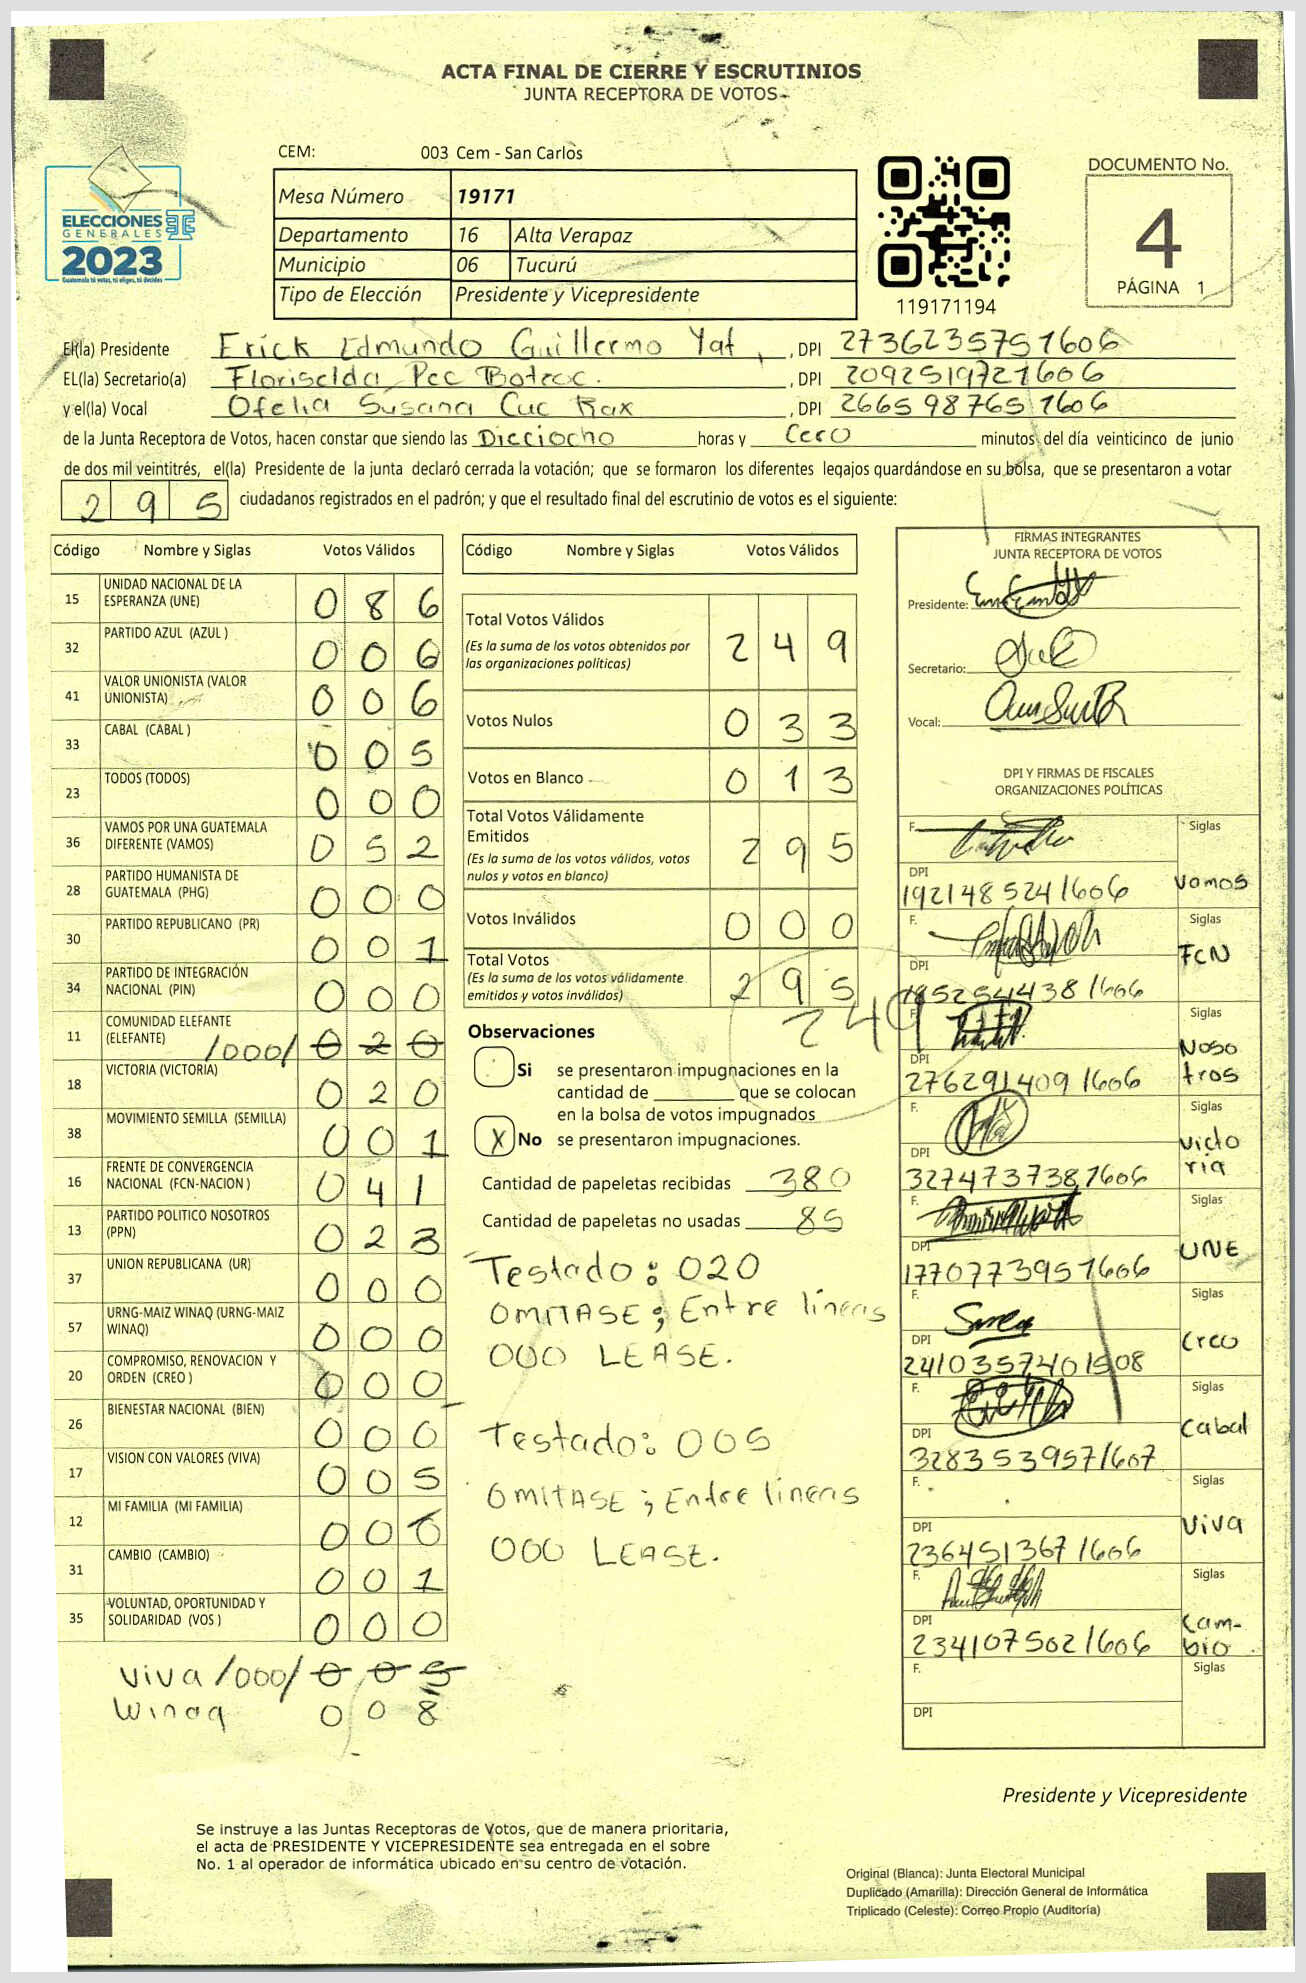 ACTA FINAL DE CIERRE Y ESCRUTINIOS
JUNTA RECEPTORA DE VOTOS
CEM: 003 Cem - San Carlos
Mesa Número 19171
Departamento 16 Alta Verapaz
Municipio 06 Tucurú
Tipo de Elección Presidente y Vicepresidente
ELECCIONES
GENERALES
2023
Guatemala tú votas, tú eliges, tú decides
119171194
DOCUMENTO No.
4
PÁGINA 1
El(la) Presidente Erick Edmundo Guillermo Yat, , DPI 2736235751606
EL(la) Secretario(a) Floriselda Pec Botzoc. , DPI 2092519721606
y el(la) Vocal Ofelia Susana Cuc Rax , DPI 2665987651606
de la Junta Receptora de Votos, hacen constar que siendo las Dieciocho horas y Cero minutos del día veinticinco de junio
de dos mil veintitrés, el(la) Presidente de la junta declaró cerrada la votación; que se formaron los diferentes legajos guardándose en su bolsa, que se presentaron a votar
295 ciudadanos registrados en el padrón; y que el resultado final del escrutinio de votos es el siguiente:
Código Nombre y Siglas Votos Válidos
15 UNIDAD NACIONAL DE LA ESPERANZA (UNE) 086
32 PARTIDO AZUL (AZUL ) 006
41 VALOR UNIONISTA (VALOR UNIONISTA) 006
33 CABAL (CABAL ) 005
23 TODOS (TODOS) 000
36 VAMOS POR UNA GUATEMALA DIFERENTE (VAMOS) 052
28 PARTIDO HUMANISTA DE GUATEMALA (PHG) 000
30 PARTIDO REPUBLICANO (PR) 001
34 PARTIDO DE INTEGRACIÓN NACIONAL (PIN) 000
11 COMUNIDAD ELEFANTE (ELEFANTE) /000/ 020
18 VICTORIA (VICTORIA) 020
38 MOVIMIENTO SEMILLA (SEMILLA) 001
16 FRENTE DE CONVERGENCIA NACIONAL (FCN-NACION ) 041
13 PARTIDO POLITICO NOSOTROS (PPN) 023
37 UNION REPUBLICANA (UR) 000
57 URNG-MAIZ WINAQ (URNG-MAIZ WINAQ) 000
20 COMPROMISO, RENOVACION Y ORDEN (CREO ) 000
26 BIENESTAR NACIONAL (BIEN) 000
17 VISION CON VALORES (VIVA) 005
12 MI FAMILIA (MI FAMILIA) 000
31 CAMBIO (CAMBIO) 001
35 VOLUNTAD, OPORTUNIDAD Y SOLIDARIDAD (VOS ) 000
Viva /000/ 005
Winaq 008
Código Nombre y Siglas Votos Válidos
Total Votos Válidos 249
(Es la suma de los votos obtenidos por
las organizaciones políticas)
Votos Nulos 033
Votos en Blanco 013
Total Votos Válidamente
Emitidos 295
(Es la suma de los votos válidos, votos
nulos y votos en blanco)
Votos Inválidos 000
Total Votos 295
(Es la suma de los votos válidamente
emitidos y votos inválidos)
249
Observaciones
Si se presentaron impugnaciones en la
cantidad de ________ que se colocan
en la bolsa de votos impugnados
X No se presentaron impugnaciones.
Cantidad de papeletas recibidas 380
Cantidad de papeletas no usadas 85
Testado: 020
OMITASE ; Entre líneas
000 LEASE.
Testado: 005
OMITASE ; Entre líneas
000 LEASE.
FIRMAS INTEGRANTES
JUNTA RECEPTORA DE VOTOS
Presidente:
Secretario:
Vocal:
DPI Y FIRMAS DE FISCALES
ORGANIZACIONES POLÍTICAS
F. Siglas
DPI 1921485241606 Vamos
F. Siglas
DPI 1852544381606 FCN
F. Siglas
DPI 2762914091606 Nosotros
F. Siglas
DPI 3274737381606 Victoria
F. Siglas
DPI 1770773951606 UNE
F. Siglas
DPI 2410357401508 Creo
F. Siglas
DPI 3283539571607 Cabal
F. Siglas
DPI 2364513671606 Viva
F. Siglas
DPI 2341075021606 Cam-bio
F. Siglas
DPI
Presidente y Vicepresidente
Se instruye a las Juntas Receptoras de Votos, que de manera prioritaria,
el acta de PRESIDENTE Y VICEPRESIDENTE sea entregada en el sobre
No. 1 al operador de informática ubicado en su centro de votación.
Original (Blanca): Junta Electoral Municipal
Duplicado (Amarilla): Dirección General de Informática
Triplicado (Celeste): Correo Propio (Auditoría)